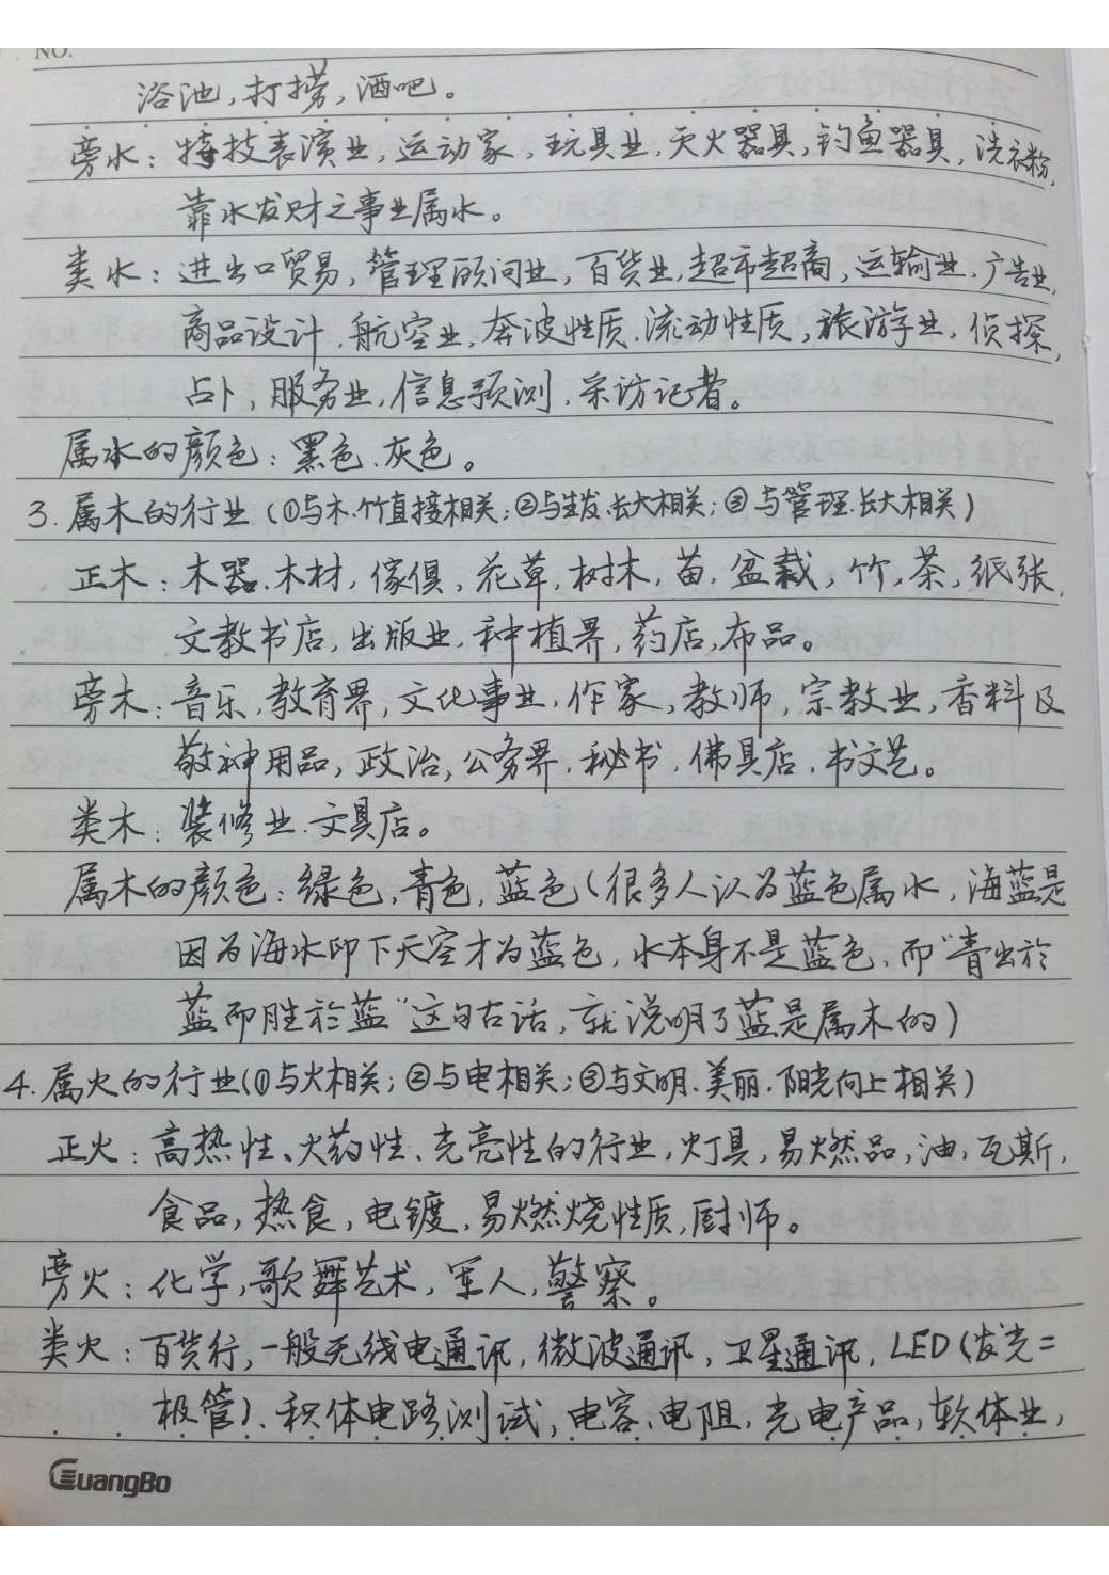 NO.
浴池,打捞,酒吧。
旁水:特技表演业,运动家,玩具业,灭火器具,钓鱼器具,洗衣粉,
靠水发财之事业属水。
类水:进出口贸易,管理顾问业,百货业,超市超商,运输业、广告业,
商品设计、航空业、奔波性质、流动性质,旅游业、侦探,
占卜,服务业,信息预测、采访记者。
属水的颜色:黑色、灰色。
3.属木的行业(①与木、竹直接相关;②与生发、长大相关;③与管理、长大相关)
正木:木器、木材,傢俱,花草,树木,苗,盆栽,竹,茶,纸张,
文教书店,出版业,种植界,药店,布品。
旁木:音乐,教育界,文化事业,作家,教师,宗教业,香料及
敬神用品,政治,公务界、秘书、佛具店、书文艺。
类木:装修业、文具店。
属木的颜色:绿色,青色,蓝色(很多人认为蓝色属水,海蓝是
因为海水印下天空才为蓝色,水本身不是蓝色、而“青出於
蓝而胜於蓝”这句古话,就说明了蓝是属木的)
4.属火的行业(①与火相关;②与电相关;③与文明、美丽、阳光向上相关)
正火:高热性、火药性、光亮性的行业,灯具,易燃品,油,瓦斯,
食品,热食,电镀,易燃烧性质,厨师。
旁火:化学,歌舞艺术,军人,警察。
类火:百货行,一般无线电通讯,微波通讯,卫星通讯,LED(发光二
极管)、积体电路测试,电容、电阻,光电产品,软体业,
GuangBo